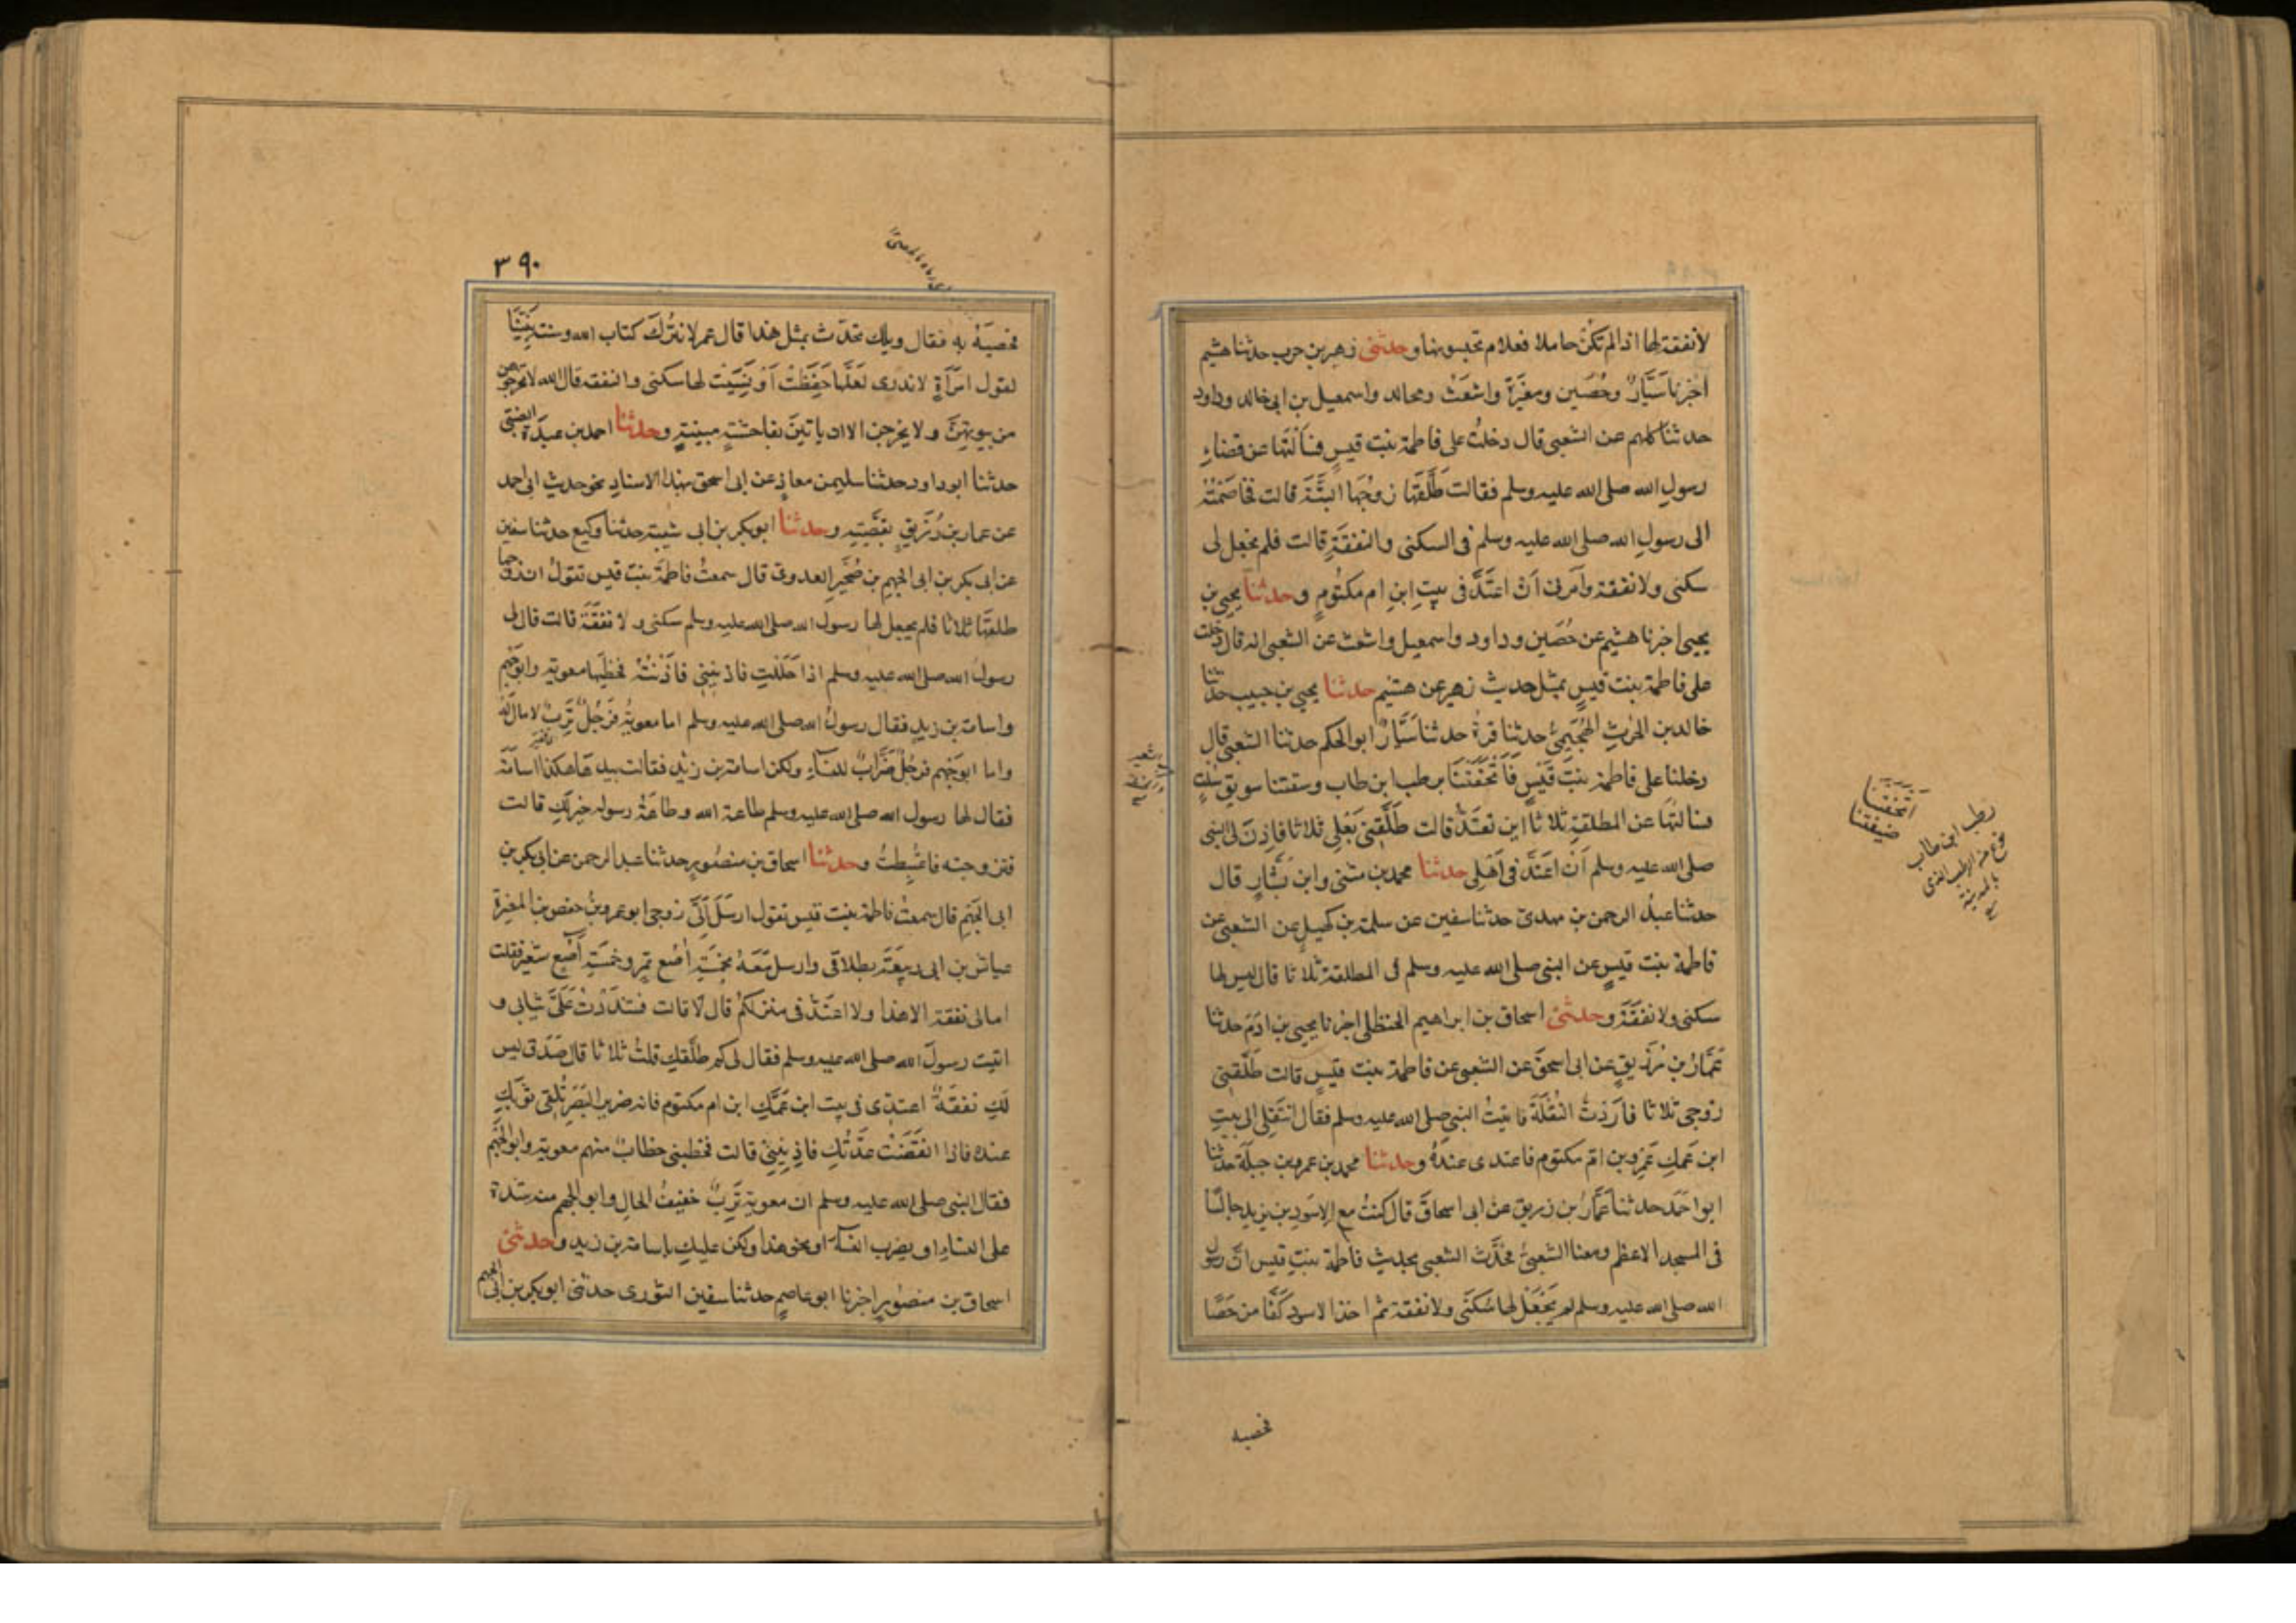 لا نفقة لها اذا لم تكن حاملا فعلام تحبسونها وحدثنى زهير بن حرب حدثنا هشيم
اخبرنا سَيَّارٌ وحُصَين ومغيرَة واشعَث ومجالد واسمعيل بن ابى خالد وداود
حدثنا كلهم عن الشعبى قال دخلتُ على فاطمة بنت قيسٍ فسألتها عن قضاءِ
رسولِ الله صلى الله عليه وسلم فقالت طَلَّقَهَا زوجُهَا البتَّةَ قالت فخاصَمْتُهُ
الى رسولِ الله صلى الله عليه وسلم فى السكنى والنفقةِ قالت فلم يجعل لى
سكنى ولا نفقة وأمرنى أنْ اعتَدَّ فى بيتِ ابنِ ام مكتُومٍ وحدثنا يحيى بن
يحيى اخبرنا هشيم عن حُصَين وداود واسمعيل واشعث عن الشعبى انه قال دخلت
على فاطمة بنت قيسٍ بمثل حديث زهير عن هشيم حدثنا يحيى بن حبيب حدثنا
خالد بن الحٰرثِ الهُجَيمِىُّ حدثنا قرةُ حدثنا سَيَّارٌ ابو الحكم حدثنا الشعبى قال
دخلنا على فاطمة بنتَ قَيْسٍ فَأَتْحَفَتْنَا برطب ابن طاب وسقتنا سويق سُلْتٍ
فسالتُهَا عن المطلقةِ ثلاثا اين تعتَدُّ قالت طَلَّقَنِى بَعْلِى ثلاثا فاذِنَ لى النبى
صلى الله عليه وسلم أنْ اعتَدَّ فى أهلِى حدثنا محمد بن مثنى وابن بَشَّارٍ قال
حدثنا عبدُ الرحمن بن مهدىّ حدثنا سفين عن سلمة بن كهيلٍ عن الشعبى عن
فاطمة بنت قيسٍ عن النبى صلى الله عليه وسلم فى المطلقة ثلاثا قال ليس لها
سكنى ولا نفقَةَ وحدثنى اسحاق بن ابراهيم الحنظلى اخبرنا يحيى بن ادَمَ حدثنا
عَمَّارُ بن رُزَيقٍ عن ابى اسحقَ عن الشعبى عن فاطمة بنت قيسٍ قالت طَلَّقَنِى
زوجى ثلاثا فأردتُ النُّقْلَةَ فاتيتُ النبى صلى الله عليه وسلم فقال انتَقِلِى الى بيتِ
ابن عمكِ عَمْرِو بن امّ مكتوم فاعتدى عندَهُ وحدثنا محمد بن عمرو بن جبلَةَ حدثنا
ابو احمَدَ حدثنا عَمَّارُ بن زريق عن ابى اسحاقَ قال كنتُ مع الاسوَدِ بن يزيد جالسًا
فى المسجد الاعظم ومعنا الشعبىُّ فحَدَّثَ الشعبى بحديثِ فاطمة بنتِ قيس انّ رسول
الله صلى الله عليه وسلم لم يَجْعَلْ لها سُكنَى ولا نفقة ثم اخذ الاسود كَفًّا من حَصًا
فحصبه
اتْحَفَتْنَا
ضيفتنا
رطب ابن طاب
نوع من الرطب الذى
بالمدينة
٣٩٠
فحصبَهُ بهِ فقال ويلك تحَدّث بمثل هذا قال عمر لا نترُكُ كتاب الله وسنت نبيِّنا
لقول امرَأةٍ لا ندرى لَعَلَّهَا حَفِظَتْ أوْ نَسِيَتْ لها سكنى والنفقه قال الله لا تخرجوهن
من بيوتهنّ ولا يخرجن الا ان ياتينَ بفاحشةٍ مبينةٍ وحدثنا احمد بن عبدَة الضبى
حدثنا ابو داود حدثنا سليمن معاذٍ عن ابى اسحق بهذا الاسنادِ نحو حديث ابى احمد
عن عمار بن رُزَيقٍ بقصَّتِهِ وحدثنا ابو بكر بن ابى شيبة حدثنا وكيع حدثنا سفين
عن ابى بكر بن ابى الجهم بن صُخَيرٍ العدوىّ قال سمعتُ فاطمَةَ بنت قيس تقولُ ان زوجها
طلقَهَا ثلاثا فلم يجعل لها رسول الله صلى الله عليه وسلم سكنى ولا نفقَةَ قالت قال لى
رسول الله صلى الله عليه وسلم اذا حَلَلتِ فاذنينِى فآذَنْتُهُ فخطبها معوية وابو جَهْمٍ
واسامة بن زيدٍ فقال رسولُ الله صلى الله عليه وسلم اما معويةُ فرَجُلٌ تَرِبٌ لا مال له
واما ابو جَهْم فرجُلٌ ضَرَّابٌ للنسَاءِ ولكن اسامة بن زيْدٍ فقالت بيدها هكذا اسامَةُ
فقال لها رسول الله صلى الله عليه وسلم طاعة الله وطاعَةُ رسوله خير لكِ قالت
فتزوجته فاغتُبِطتُ وحدثنا اسحاق بن منصُورٍ حدثنا عبد الرحمن عن ابى بكر بن
ابى الجَهْمِ قال سمعتُ فاطمة بنت قيس تقول ارسَلَ اِلَىَّ زوجى ابو عمرو بنُ حفص بن المغيرة
عياش بن ابى ربيعَةَ بطلاقى وارسل مَعَهُ بخَمسَةِ آصُع تمر وخمسَةِ آصُع شعير فقلت
اما لى نفقة الا هذا ولا اعتَدُّ فى منزلكُم قال لا قالت فشَدَدْتُ عَلَىَّ ثيابى و
اتيت رسولَ الله صلى الله عليه وسلم فقال لى كم طلَّقكِ قلتُ ثلاثا قال صَدَقَ ليس
لكِ نفقَةٌ اعتدّى فى بيت ابن عَمِّكِ ابن ام مكتوم فانه ضرير البَصَرِ تُلقِى ثوبَكِ
عنده فاذا انقضَتْ عدَّتُكِ فاذنِينِى قالت فخطبنى خطابٌ منهم معوية وابو الجَهْم
فقال النبى صلى الله عليه وسلم ان معوية تَرِبٌ خفيفُ الحالِ وابو الجهم منه شدة
على النساءِ او يضرب النساء او نحو هذا ولكن عليكِ باسامة بن زيد وحدثنى
اسحاق بن منصُورٍ اخبرنا ابو عاصمٍ حدثنا سفين الثورى حدثنى ابو بكر بن ابى الجهم